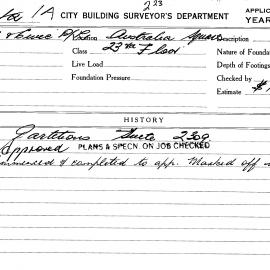 1A CITY BUILDING SURVEYOR'S DEPARTMENT 223 APPLIC
YEAR
P/L Australia Square Description
Class 23rd Floor Nature of Foundat
Live Load Depth of Footings
Foundation Pressure Checked by
Estimate $
HISTORY
Partitions Suite 2309
Approved PLANS & SPECN. ON JOB CHECKED
mmenced & completed to app. Marked off